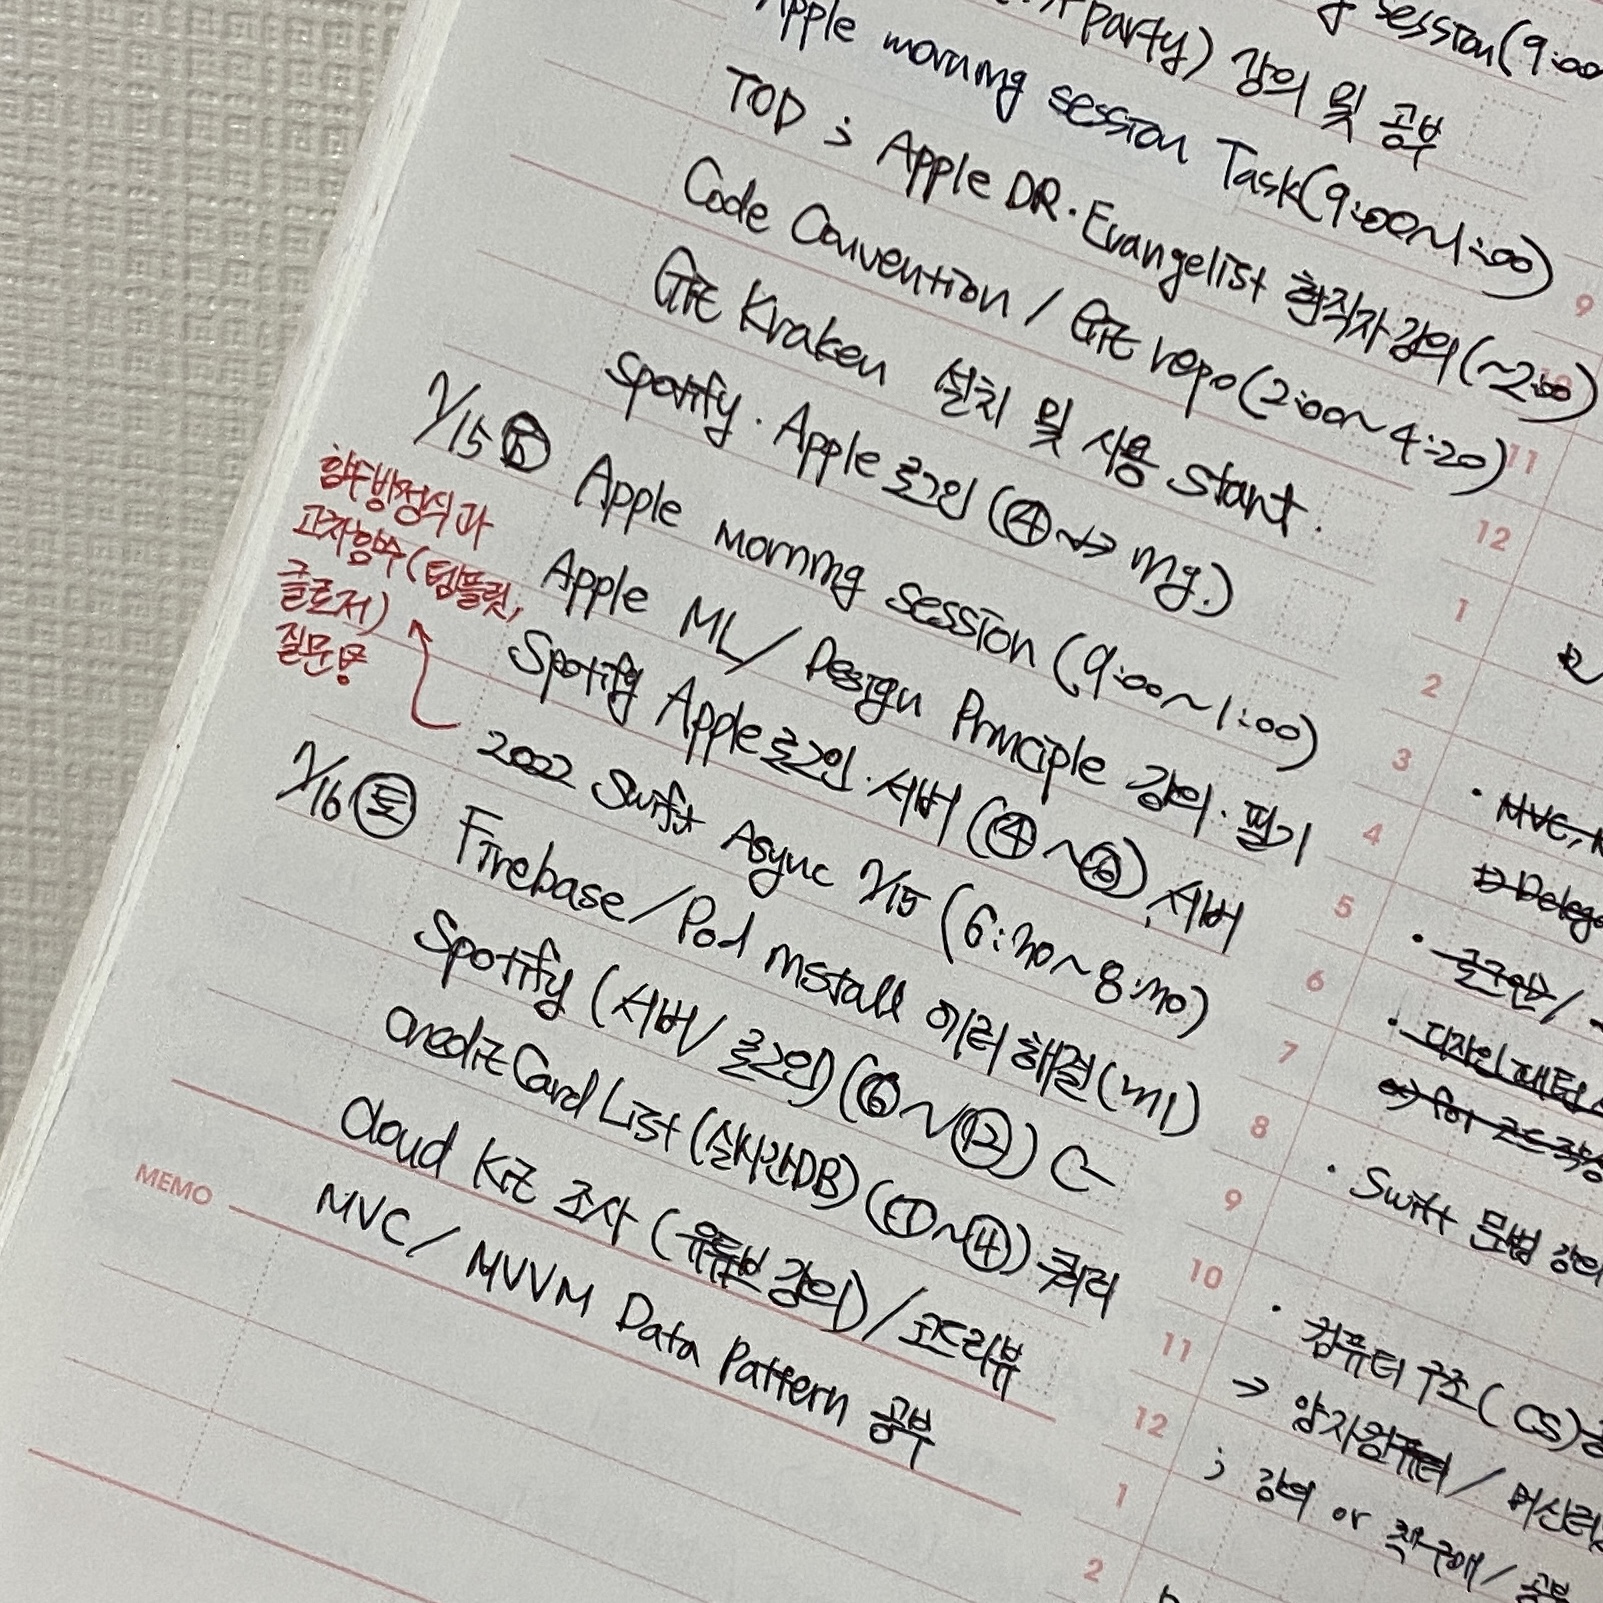 session(9:00
party) 강의 및 공부
Apple morning session Task(9:00~1:00)
TOD ; Apple DR. Evangelist 현직자 강의 (~2:00)
Code Convention / Git repo(2:00~4:20)
Git Kraken 설치 및 사용 start.
Spotify. Apple 로그인 (④ ~> ing.)
7/15 금 Apple morning session (9:00~1:00)
Apple ML/ Design Principle 강의. 필기
Spotify Apple 로그인. 서버 (④~⑥). 서버
2022 Swift Async 7/15 (6:30~8:30)
함수방정식과
고차함수(템플릿,
클로저)
질문
7/16 토 Firebase/Pod install 에러 해결(m1)
Spotify (서버/ 로그인) (⑥~⑫)
Credit Card List (실시간DB) (~④) 쿼리
Cloud Kit 조사 (유튜브 강의) / 코드리뷰
MVC/ MVVM Data Pattern 공부
MEMO
9
10
11
12
1
2
3
4
5
6
7
8
9
10
11
12
1
2
· MVC,
· 로그인/
· 디자인 패턴
· Swift 문법 강의
· 컴퓨터 구조 (CS)
→ 양자컴퓨터 / 머신러
; 강의 or 책구매 / 공부